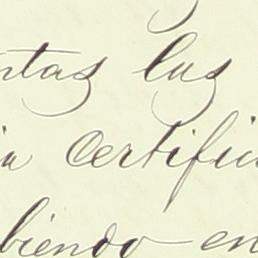 ntas las
ia certific
biendo en